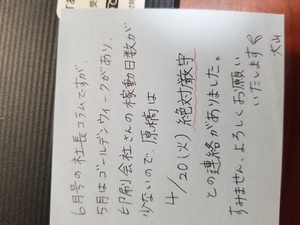 6月号の社長コラムですが、
5月はゴールデンウィークがあり、
印刷会社さんの稼動日数が
少ないので、原稿は
4/20(火) 絶対厳守
との連絡がありました。
すみません、よろしくお願い
いたします
大山